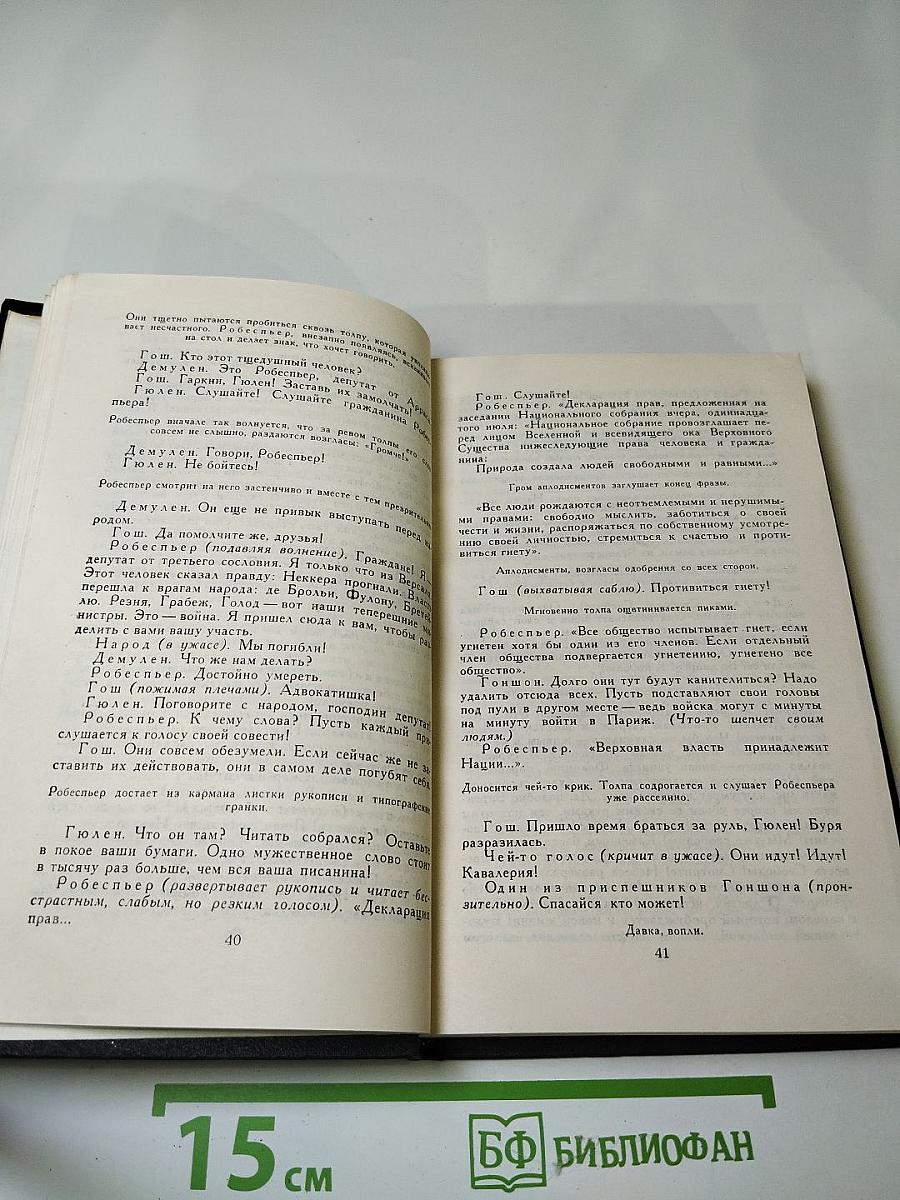 Они тщетно пытаются пробиться сквозь толпу, которая
вает несчастного. Робеспьер, внезапно появляясь,
на стол и делает знак, что хочет говорить.
Гош. Кто этот тщедушный человек?
Демулен. Это Робеспьер, депутат от
Гош. Гаркни, Гюлен! Заставь их замолчать!
Гюлен. Слушайте! Слушайте гражданина Робес-
пьера!
Робеспьер вначале так волнуется, что за ревом толпы его
совсем не слышно, раздаются возгласы: «Громче!»
Демулен. Говори, Робеспьер!
Гюлен. Не бойтесь!
Робеспьер смотрит на него застенчиво и вместе с тем
Демулен. Он еще не привык выступать перед на-
родом.
Гош. Да помолчите же, друзья!
Робеспьер (подавляя волнение). Граждане! Я...
депутат от третьего сословия. Я только что из
Этот человек сказал правду: Неккера прогнали. Власть
перешла к врагам народа: де Брольи, Фулону,
лю. Резня, Грабеж, Голод — вот наши теперешние ми-
нистры. Это — война. Я пришел сюда к вам, чтобы раз-
делить с вами вашу участь.
Народ (в ужасе). Мы погибли!
Демулен. Что же нам делать?
Робеспьер. Достойно умереть.
Гош (пожимая плечами). Адвокатишка!
Гюлен. Поговорите с народом, господин депутат!
Робеспьер. К чему слова? Пусть каждый при-
слушается к голосу своей совести!
Гош. Они совсем обезумели. Если сейчас же не за-
ставить их действовать, они в самом деле погубят себя.
Робеспьер достает из кармана листки рукописи и типографские
гранки.
Гюлен. Что он там? Читать собрался? Оставьте
в покое ваши бумаги. Одно мужественное слово стоит
в тысячу раз больше, чем вся ваша писанина!
Робеспьер (развертывает рукопись и читает бес-
страстным, слабым, но резким голосом). «Декларация
прав...
40
Гош. Слушайте!
Робеспьер. «Декларация прав, предложенная на
заседании Национального собрания вчера, одиннадца-
того июля: «Национальное собрание провозглашает пе-
ред лицом Вселенной и всевидящего ока Верховного
Существа нижеследующие права человека и гражда-
нина:
Природа создала людей свободными и равными...»
Гром аплодисментов заглушает конец фразы.
«Все люди рождаются с неотъемлемыми и нерушимы-
ми правами: свободно мыслить, заботиться о своей
чести и жизни, распоряжаться по собственному усмотре-
нию своей личностью, стремиться к счастью и проти-
виться гнету».
Аплодисменты, возгласы одобрения со всех сторон.
Гош (выхватывая саблю). Противиться гнету!
Мгновенно толпа ощетинивается пиками.
Робеспьер. «Все общество испытывает гнет, если
угнетен хотя бы один из его членов. Если отдельный
член общества подвергается угнетению, угнетено все
общество».
Гоншон. Долго они тут будут канителиться? Надо
удалить отсюда всех. Пусть подставляют свои головы
под пули в другом месте — ведь войска могут с минуты
на минуту войти в Париж. (Что-то шепчет своим
людям.)
Робеспьер. «Верховная власть принадлежит
Нации...».
Доносится чей-то крик. Толпа содрогается и слушает Робеспьера
уже рассеянно.
Гош. Пришло время браться за руль, Гюлен! Буря
разразилась.
Чей-то голос (кричит в ужасе). Они идут! Идут!
Кавалерия!
Один из приспешников Гоншона (прон-
зительно). Спасайся кто может!
Давка, вопли.
41
15 см
БФ БИБЛИОФАН